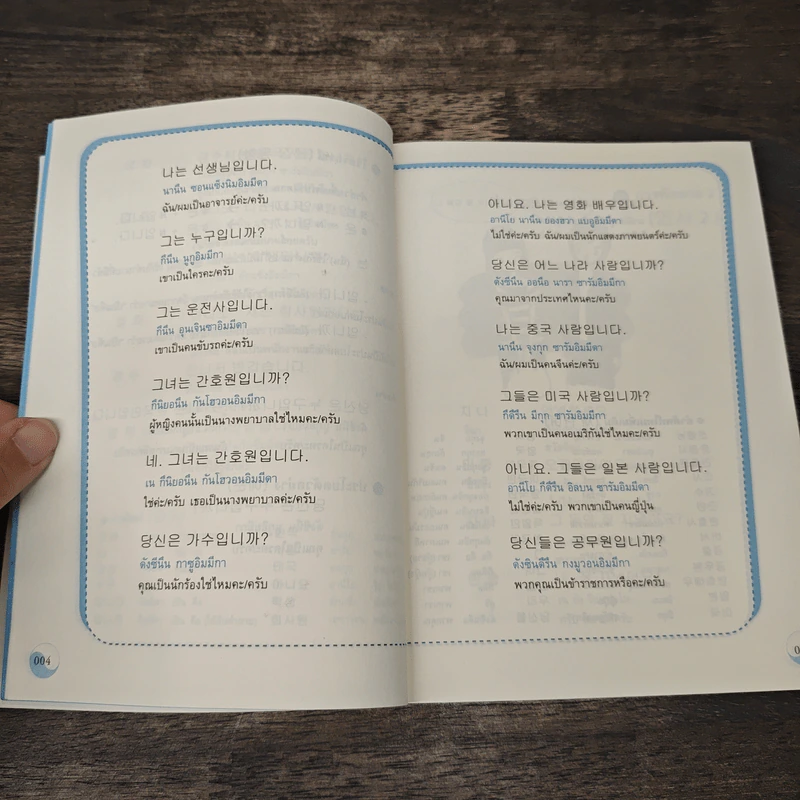 나는 선생님입니다.
นานึน ซอนแซ็งนิมอิมมีดา
ฉัน/ผมเป็นอาจารย์ค่ะ/ครับ
그는 누구입니까?
กึนึน นูกูอิมมีกา
เขาเป็นใครคะ/ครับ
그는 운전사입니다.
กึนึน อุนเจินซาอิมมีดา
เขาเป็นคนขับรถค่ะ/ครับ
그녀는 간호원입니까?
กึนิยอนึน กันโฮวอนอิมมีกา
ผู้หญิงคนนั้นเป็นนางพยาบาลใช่ไหมคะ/ครับ
네. 그녀는 간호원입니다.
เน กึนิยอนึน กันโฮวอนอิมมีดา
ใช่ค่ะ/ครับ เธอเป็นนางพยาบาลค่ะ/ครับ
당신은 가수입니까?
ดังซีนึน กาซูอิมมีกา
คุณเป็นนักร้องใช่ไหมคะ/ครับ
004
아니요. 나는 영화 배우입니다.
อานีโย นานึน ยองฮวา แบอูอิมมีดา
ไม่ใช่ค่ะ/ครับ ฉัน/ผมเป็นนักแสดงภาพยนตร์ค่ะ/ครับ
당신은 어느 나라 사람입니까?
ดังซีนึน ออนือ นารา ซารัมอิมมีกา
คุณมาจากประเทศไหนคะ/ครับ
나는 중국 사람입니다.
นานึน จุงกุก ซารัมอิมมีดา
ฉัน/ผมเป็นคนจีนค่ะ/ครับ
그들은 미국 사람입니까?
กึดึรึน มีกุก ซารัมอิมมีกา
พวกเขาเป็นคนอเมริกันใช่ไหมคะ/ครับ
아니요. 그들은 일본 사람입니다.
อานีโย กึดึรึน อิลบน ซารัมอิมมีดา
ไม่ใช่ค่ะ/ครับ พวกเขาเป็นคนญี่ปุ่น
당신들은 공무원입니까?
ดังซินดึรึน กงมูวอนอิมมีกา
พวกคุณเป็นข้าราชการหรือคะ/ครับ